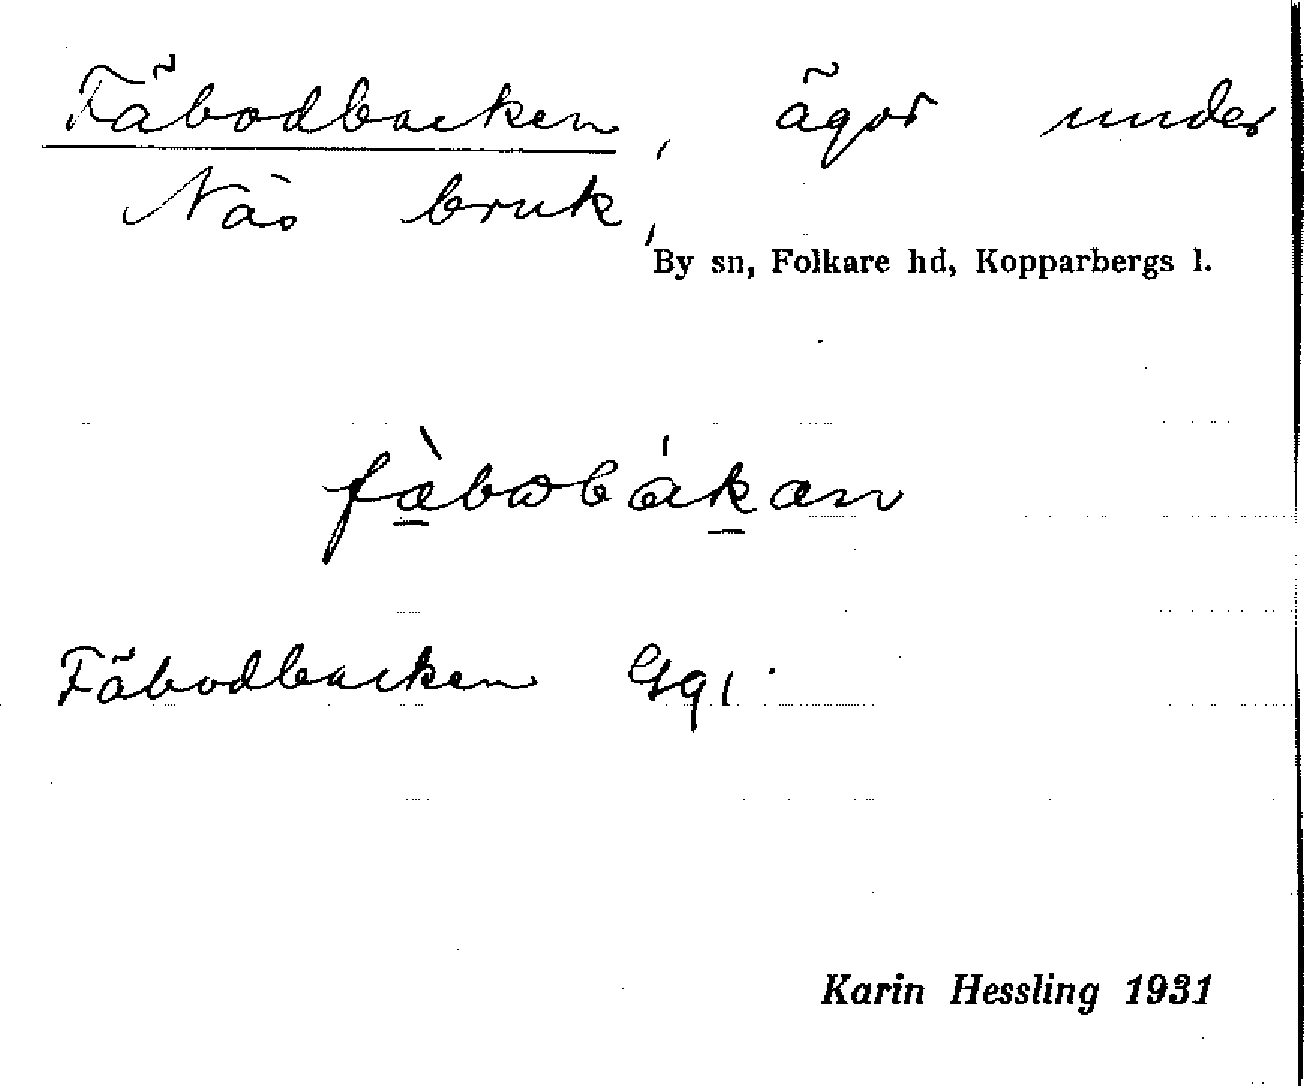 Fäbodbacken, ägor under
Näs bruk,
By sn, Folkare hd, Kopparbergs l.
fæ̀bωbákan
Fäbodbacken
Karin Hessling 1931